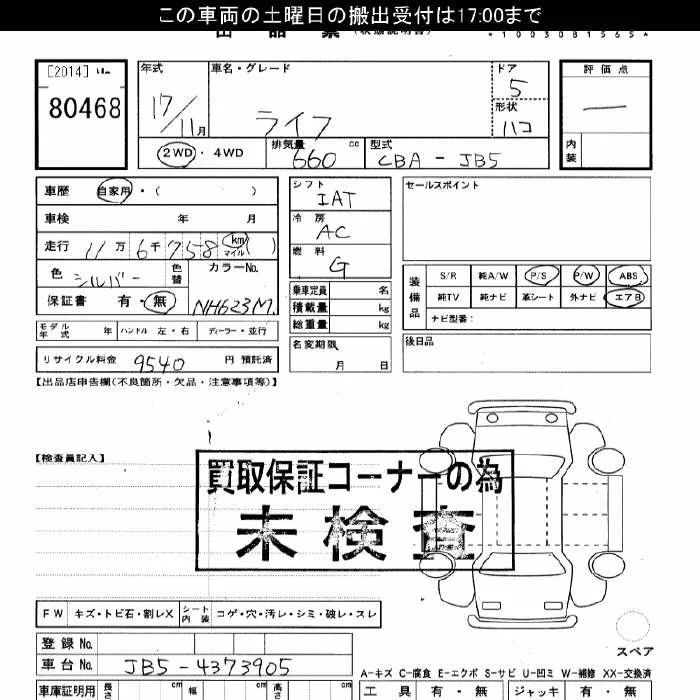 この車両の土曜日の搬出受付は17:00まで
*10030B1565*
[2014]
80468
年式
17/11月
車名・グレード
ライフ
ドア
5
形状
ハコ
評価点
―
内装
2WD・4WD
排気量 660 cc
型式 CBA-JB5
車歴 自家用・( )
車検 年 月
走行 11万6千758 km マイル( )
色 シルバー 色替
カラーNo. NH623M.
保証書 有・無
モデル年式 年 ハンドル 左・右 ディーラー・並行
リサイクル料金 9540 円 預託済
シフト IAT
冷房 AC
燃料 G
乗車定員 名
積載量 kg
総重量 kg
名変期限 月 日
セールスポイント
装備品
S/R 純A/W P/S P/W ABS
純TV 純ナビ 革シート 外ナビ エアB
ナビ型番:
後日品
【出品店申告欄(不良箇所・欠品・注意事項等)】
【検査員記入】
買取保証コーナーの為
未検査
FW キズ・トビ石・割レX シート内装 コゲ・穴・汚レ・シミ・破レ・スレ
登録No.
車台No. JB5-4373905
スペア
A-キズ C-腐食 E-エクボ S-サビ U-凹ミ W-補修 XX-交換済
車庫証明用 長さ cm 幅 cm 高さ cm
工具 有・無 ジャッキ 有・無